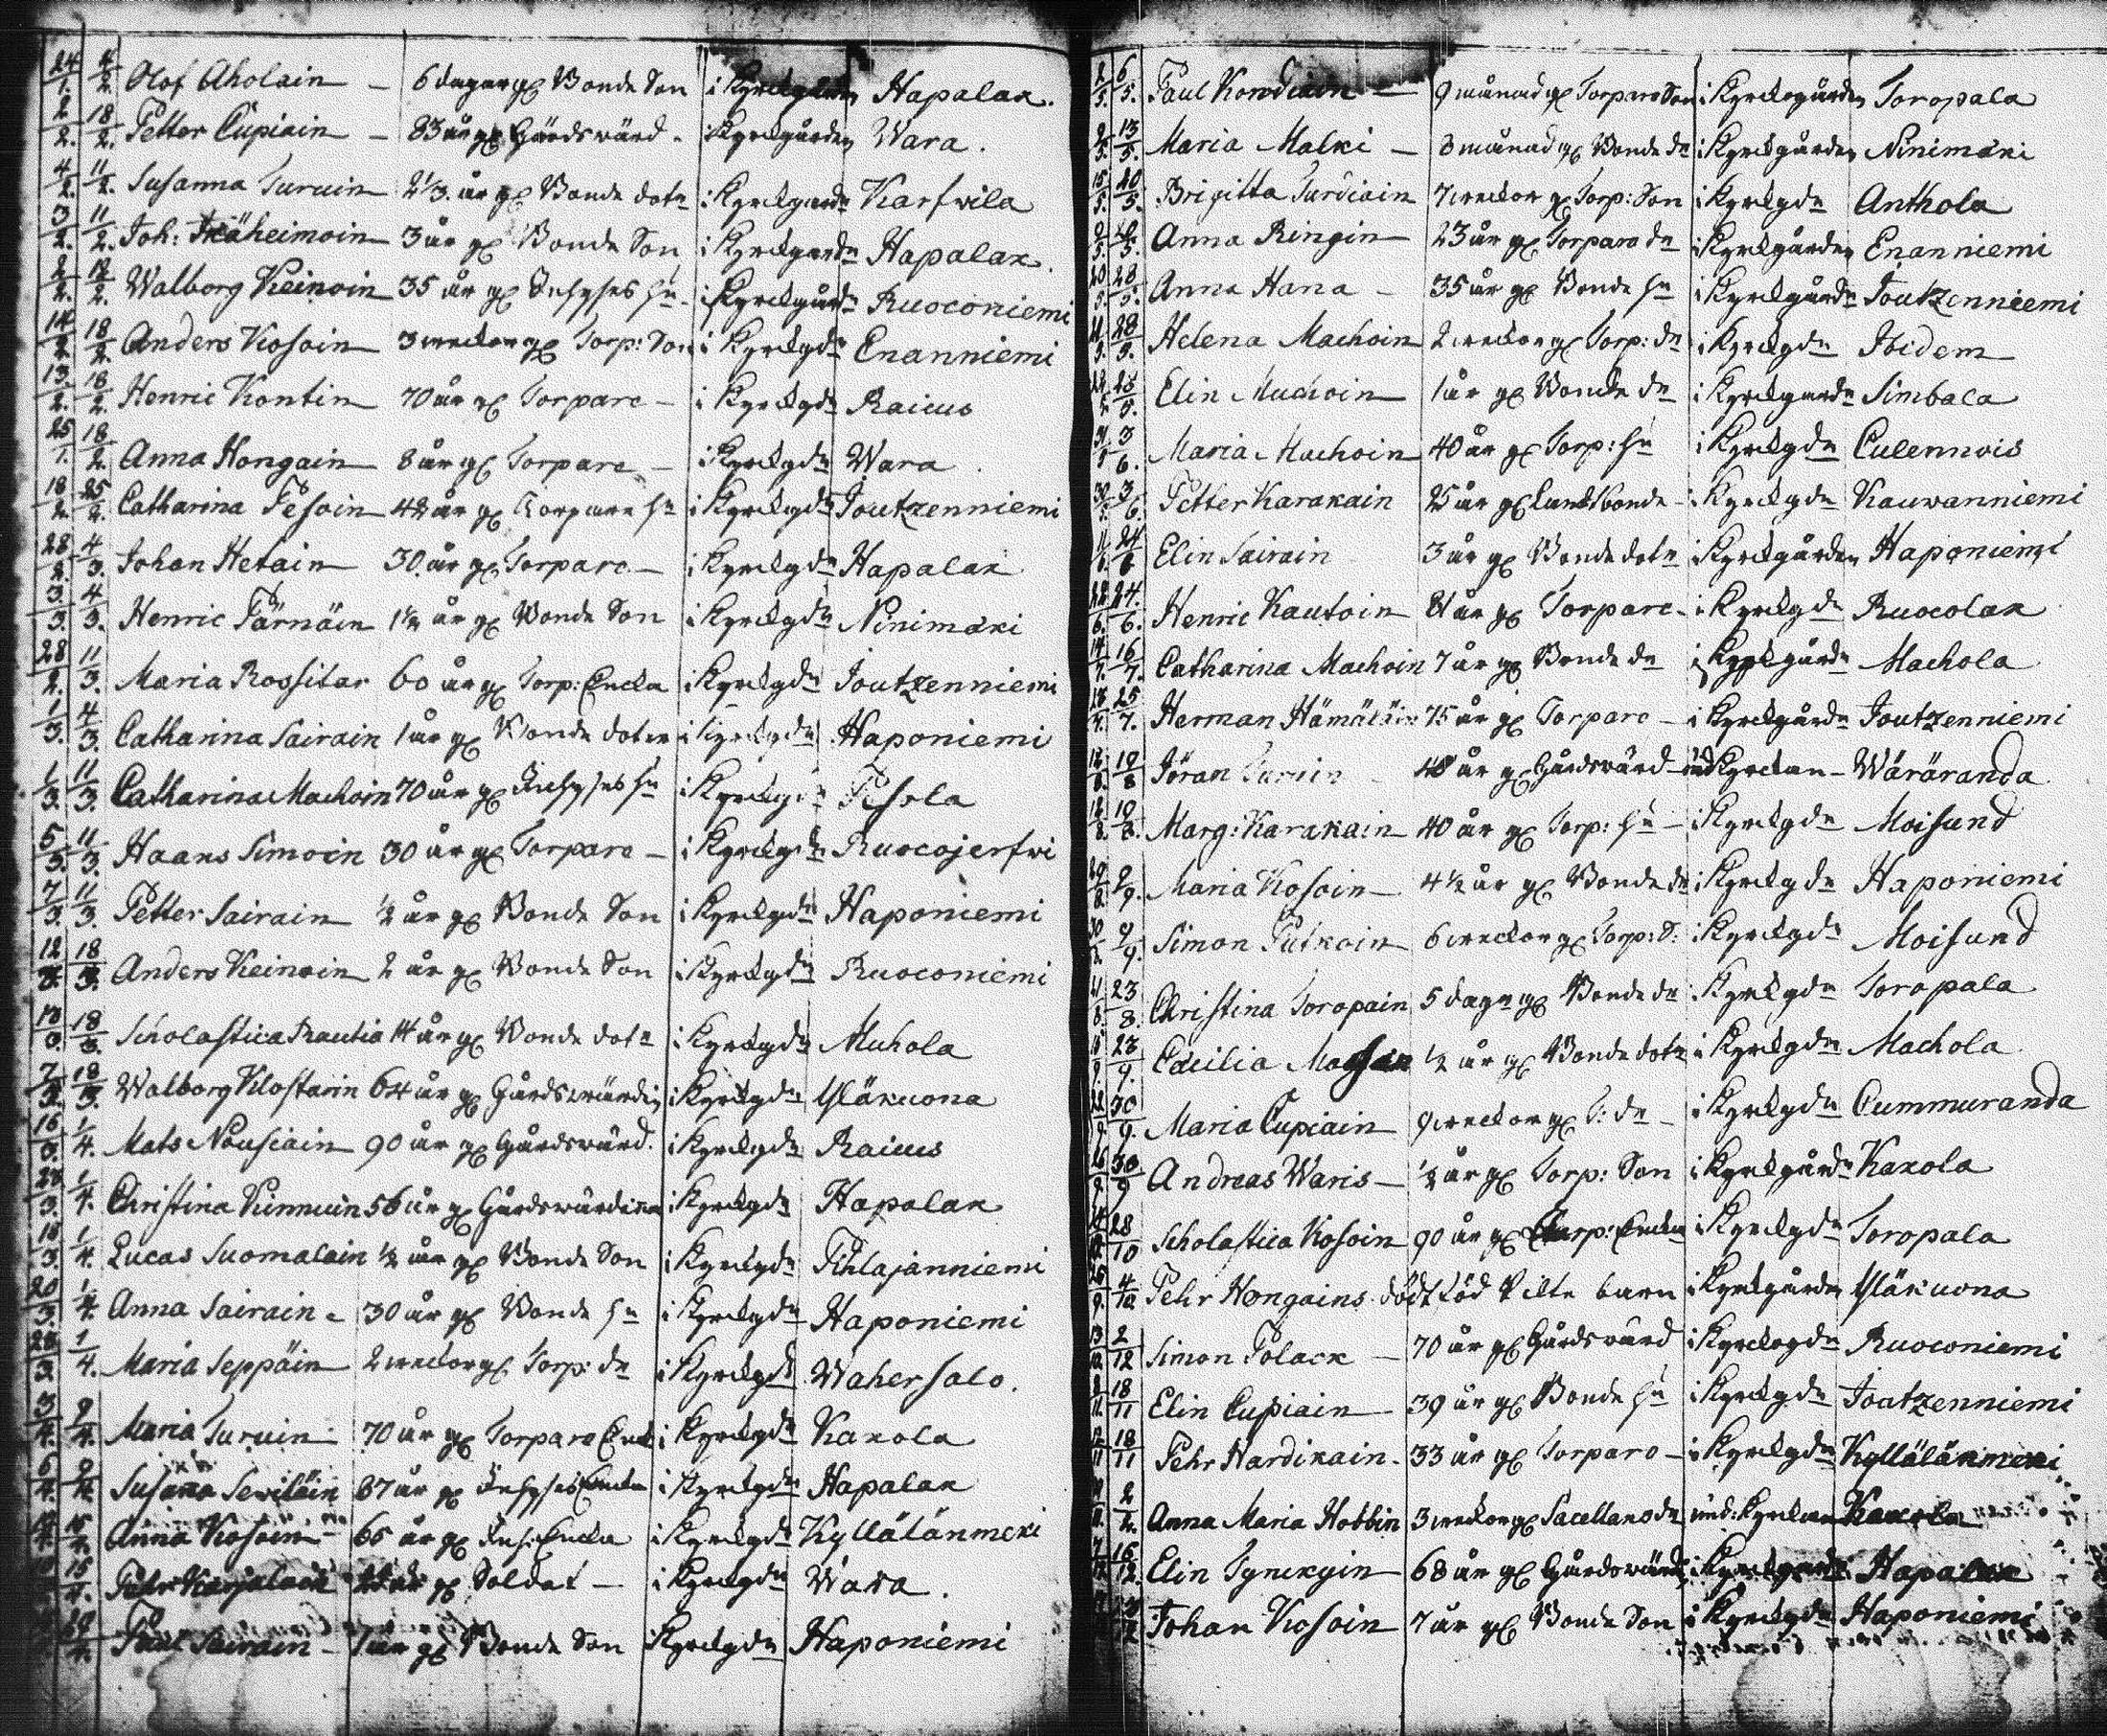 24/1. 4/2. Olof Aholain — 6 dagar gl Bonde Son i Kyrckogården Hapalax.
2/2. 18/2. Petter Cupiain — 83 år gl Gårdswärd - i Kyrckgården Wara.
4/2. 11/2. Susanna Turuin 2 1/3. år gl Bonde dotn i Kyrckgardn Karfwila
3/2. 11/2. Joh: Häheimoin 3 år gl Bonde Son i Kyrckgardn Hapalax.
2/2. 12/2. Walborg Keinoin 35 år gl Inhyses hu - i Kyrckgårdn Ruoconiemi
14/2 18/2. Anders Kosoin 3 weckor gl Torp: Son i Kyrckgdn Enanniemi
13./2. 18/2. Henric Kontin 70 år gl Torpare — i Kyrckgdn Raicus
25/1. 18/2. Anna Hongain 8 år gl Torpare — i Kyrckgdn Wara
18/2. 25/2. Catharina Pesoin 42 år gl Torpare hu i Kyrckgdn Joutzenniemi
28/2. 4/3. Johan Hetain 30 år gl Torpare — i Kyrckgdn Hapalax
3./3. 4/3. Henric Pärnäin 1 1/2 år gl Bonde Son i Kyrckgdn Ninimäki
28/2. 11/3. Maria Rossitar 60 år gl Torp: Encka i Kyrckgdn Joutzenniemi
1/3. 4/3. Catharina Sairain 1 år gl Bonde doter i Kyrckgdn Haponiemi
1/3. 11/3. Catharina Machoin 70 år gl Inhyses hu i Kyrckgdn Pesola
5/3. 11/3. Haans Simoin 30 år gl Torpare — i Kyrckgdn Ruocojerfwi
7/3 11/3. Petter Sairain 1/2 år gl Bonde Son i Kyrckgdn Haponiemi
12/3. 18/3. Anders Keinoin 2 år gl Bonde Son i Kyrckgdn Ruoconiemi
18/3. Scholastica Rautia 14 år gl Bonde dotn i Kyrckgdn Muhola
7/3. 18/3. Walborg Klostarin 64 år gl Gårdswärdin i Kyrckgdn Yläkuona
16/3. 1/4. Mats Nousiain 90 år gl Gårdswärd. i Kyrckgdn Raicus
1/4. Christina Kinnuin 56 år gl Gårdswärdinna i Kyrckgdn Hapalax
1/4. Lucas Suomalain 1/2 år gl Bonde Son i Kyrckgdn Pihlajanniemi
20/3. 1/4. Anna Sairain - 30 år gl Bonde hu i Kyrckgdn Haponiemi
1/4. Maria Seppäin 2 weckor gl Torp: dn i Kyrckgdn Wahersalo.
3/4. 9/4. Maria Turuin 70 år gl Torpare Enck i Kyrckgdn Kakola
6/4. 9/4. Susana Sewiläin 67 år gl Inhyses Encka i Kyrckgdn Hapalax
15/4. Anna Kosoin 65 år gl Inh: Encka i Kyrckgdn Kyllälänmeki
15/4. Pehr Karjalain gl Soldat — i Kyrckgdn Wara.
Paul Sairain — 1 år gl Bonde Son i Kyrckgdn Haponiemi
2/5. 6/5. Paul Kondiain — 9 månad gl Torpare Son i Kyrckogården Toropala
13/5. Maria Malki — 8 månad gl Bonde dn i Kyrckgården Ninimäki
15/5. 20/5. Brigitta Turdiain 7 weckor gl Torp: Son i Kyrckgdn Anthola
Anna Ringin — 23 år gl Torpare dn i Kyrckgården Enanniemi
20/5. 28/5. Anna Hana — 35 år gl Bonde hu i Kyrckgårdn Joutzenniemi
28/5. Helena Machoin 2 weckor gl Torp: dn i Kyrckgdn Ibidem
Elin Muchoin 1 år gl Bonde dn i Kyrckgardn Simbala
3/6. Maria Machoin 40 år gl Torp: hu i Kyrckgdn Culennois
30/5. 3/6. Petter Karakain 25 år gl Landbonde — i Kyrckgdn Kauwanniemi
24/6 Elin Sairain 3 år gl Bonde dotn i Kyrckgården Haponiemi
22/6. 24./6. Henric Kautoin 81 år gl Torpare — i Kyrckgdn Ruocolax
14/7. 16/7. Catharina Machoin 7 år gl Bonde dn i Kyrckgårdn Machola
25/7. Herman Hämäläin 75 år gl Torpare — i Kyrckgårdn Joutzenniemi
10/8 Jöran Turuin 48 år gl Gårdswärd - und Kyrckan - Wäräranda
12/8. 10/8. Marg: Karakain 40 år gl Torp: hu — i Kyrckgdn Moisund
29/8. 2/9. Maria Kosoin 4 1/2 år gl Bonde dn i Kyrckgdn Haponiemi
30/8. 9/9. Simon Putkoin 6 weckor gl Torp: S: i Kyrckgdn Moisund
23/8. Christina Toropain 5 dagn gl Bonde dn i Kyrckgdn Toropala
23/9. Cecilia 1/2 år gl Bonde dotn i Kyrckgdn Machola
22/9. 30/9. Maria Cupiain 9 weckor gl T: dn — i Kyrckgdn Cummuranda
30/9 Andreas Waris — 1/2 år gl Torp: Son i Kyrckgårdn Kakola
28/10 Scholastica Kosoin 90 år gl Torp: Encka i Kyrckgdn Toropala
4/10 Pehr Hongains död född Pilte barn i Kyrckgården Yläkuona
2/12 Simon Polack — 70 år gl Gårdswärd i Kyrckogdn Ruoconiemi
18/11 Elin Cupiain — 39 år gl Bonde hu i Kyrckgdn Joutzenniemi
18/11 Pehr Hardikain - 33 år gl Torpare — i Kyrckgdn Kyllälänmeki
2/12. Anna Maria Hobbin 3 weckor gl Sacellans dn und: Kyrckan Kakola
16/12. Elin Tynckyin 68 år gl Gårdswärdi i Kyrckgardn Hapalax
Johan Kosoin 7 år gl Bonde Son i Kyrckgdn Haponiemi